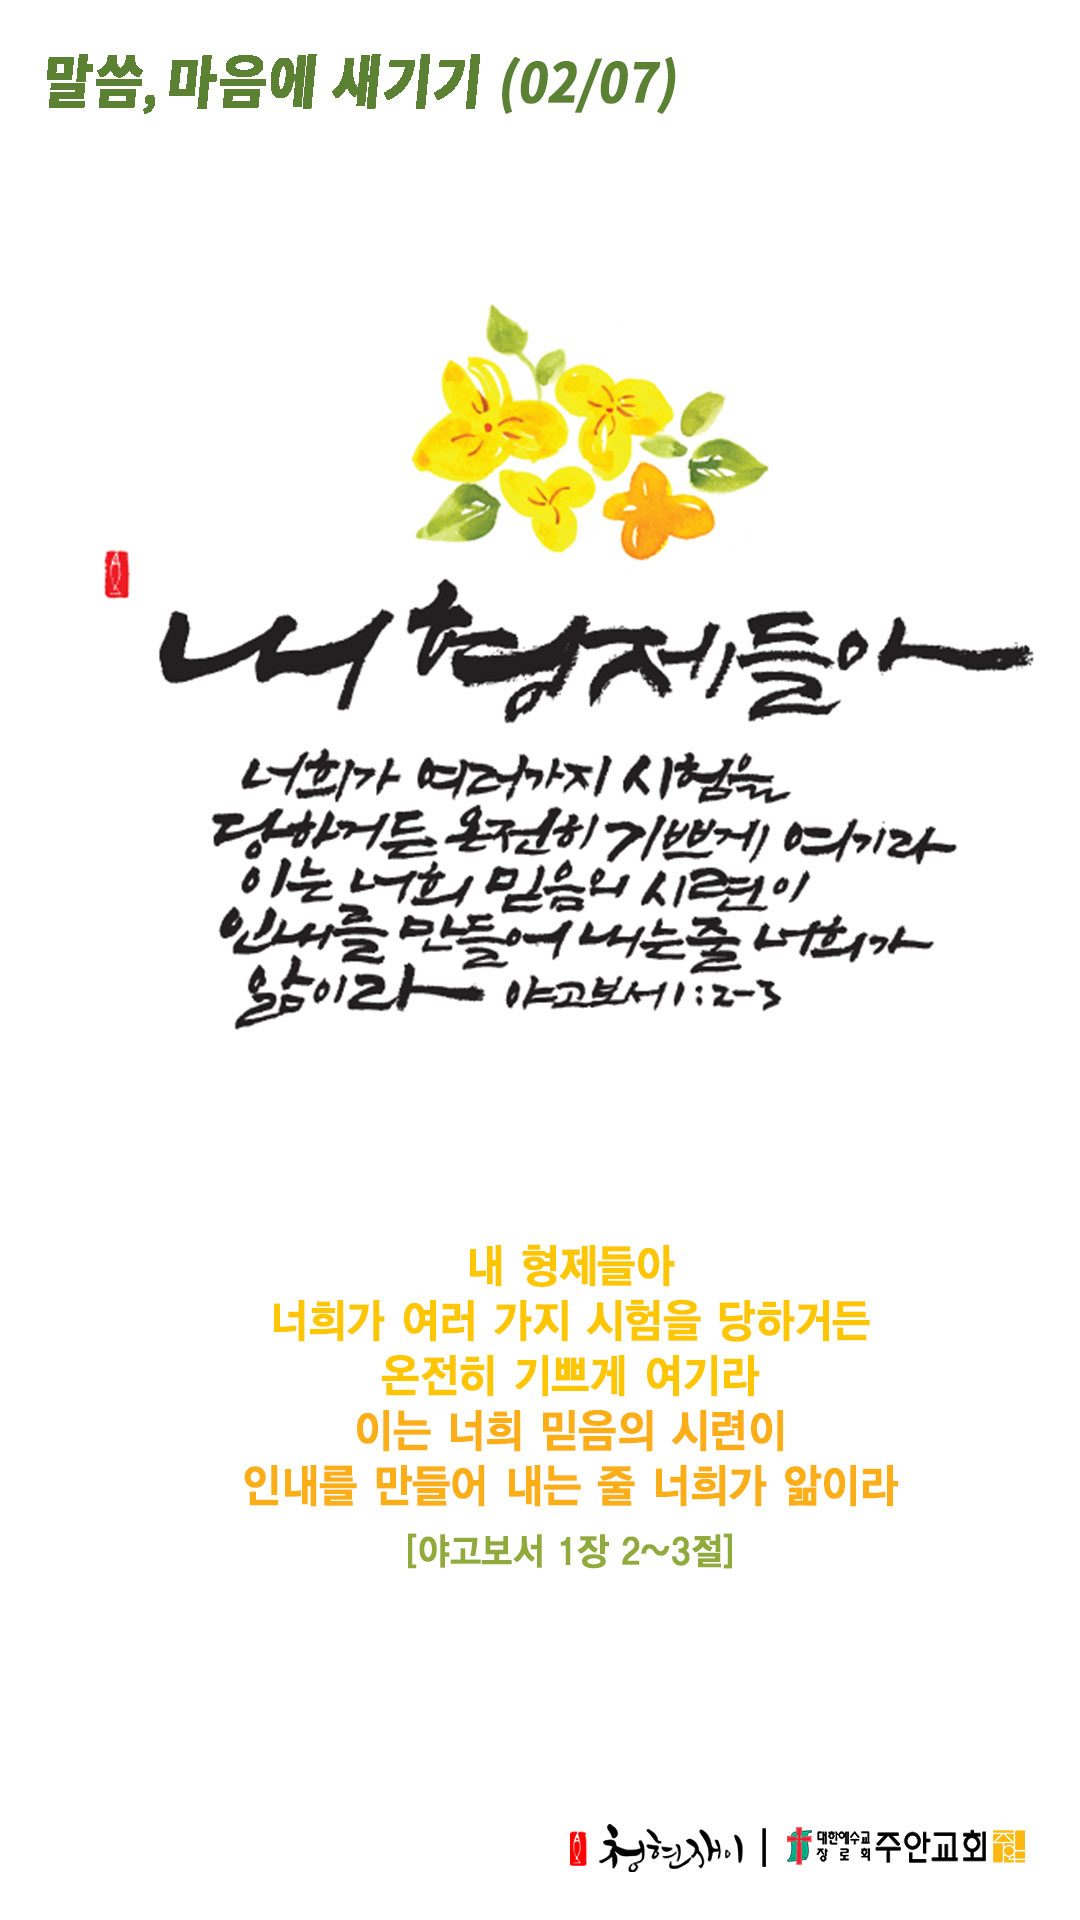 말씀, 마음에 새기기 (02/07)
내 형제들아
너희가 여러가지 시험을
당하거든 온전히 기쁘게 여기라
이는 너희 믿음의 시련이
인내를 만들어 내는줄 너희가
앎이라 야고보서 1:2-3
내 형제들아
너희가 여러 가지 시험을 당하거든
온전히 기쁘게 여기라
이는 너희 믿음의 시련이
인내를 만들어 내는 줄 너희가 앎이라
[야고보서 1장 2~3절]
청현재이 | 대한예수교 장로회 주안교회